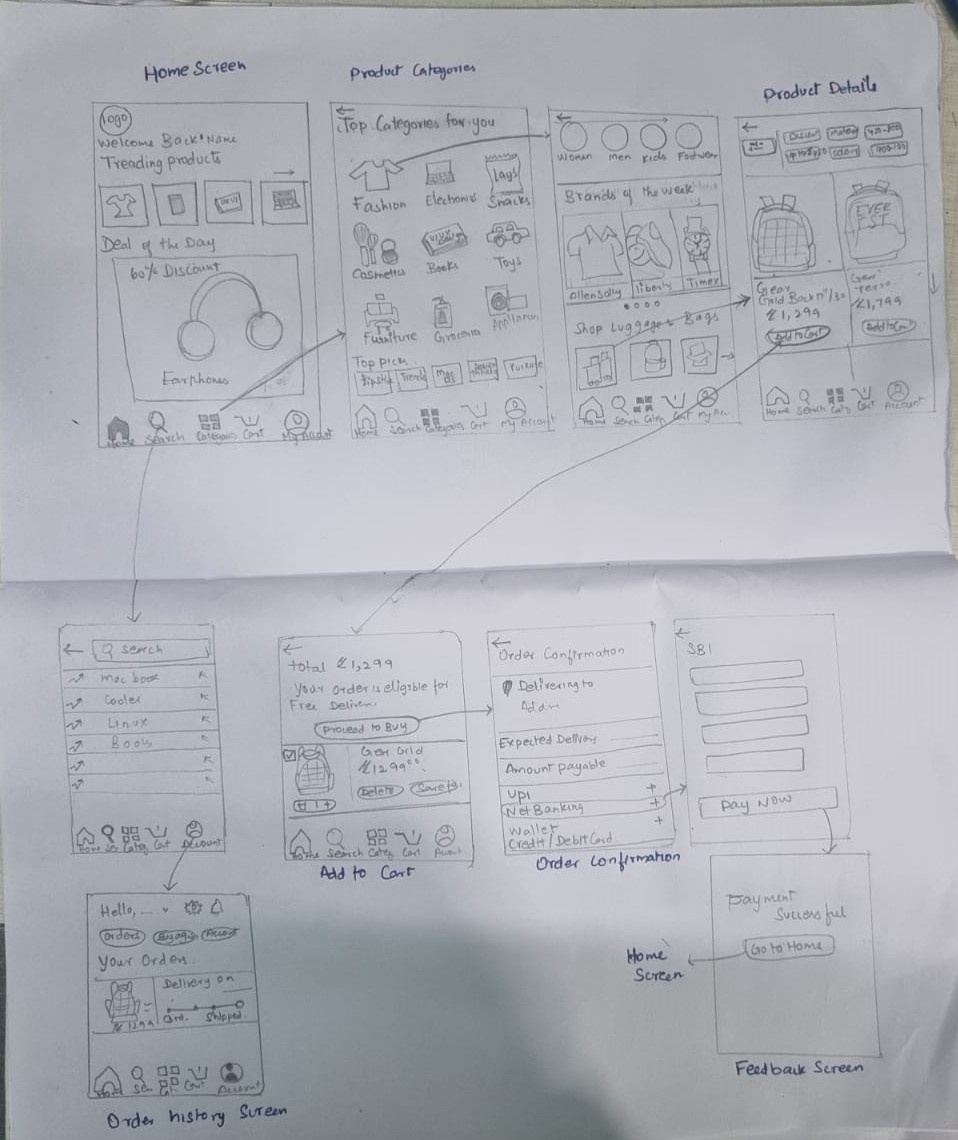 Home Screen
logo
Welcome Back! Name
Treading products
Deal of the Day
60% Discount
Earphones
Home Search Categoris Cart My Accout
Product Categories
Top Categories for you
Fashion Electronics Snacks
Lays
Cosmetics Books Toys
Furniture Groceries
Top picks
Lipstick Trends
Home Search Categories Cart My Account
Women Men Kids Footwear
Brands of the week
Allensolly liberty Timex
Shop Luggages Bags
Home Search Categ Cart My Acc.
Product Details
EVER
EST
Gear
Grid Back
₹1,299
Add to Cart
Gear
Terra
₹1,799
Add to Cart
Home Search Cats Cart Account
search
Mac book
Cooler
Linux
Books
Home Se Categ Cat Account
total ₹1,299
Your order is eligible for
Free Deliver.
Proceed to Buy
Gear Grid
₹1299⁰⁰
Delete
1 +
Home Search Categ Cart Accont
Add to Cart
Order Confirmation
Delivering to
Expected Delivey
Amount payable
Upi +
Net Banking +
Wallet +
Credit / Debit Card
Order Confirmation
SBI
Pay Now
payment
Successful
Go to Home
Home
Screen
Feedback Screen
Hello, ...
Orders Account
Your Order.
Delivery on
₹1299
Ord. Shipped
Home Sea Cat Cart Account
Order history Sureen